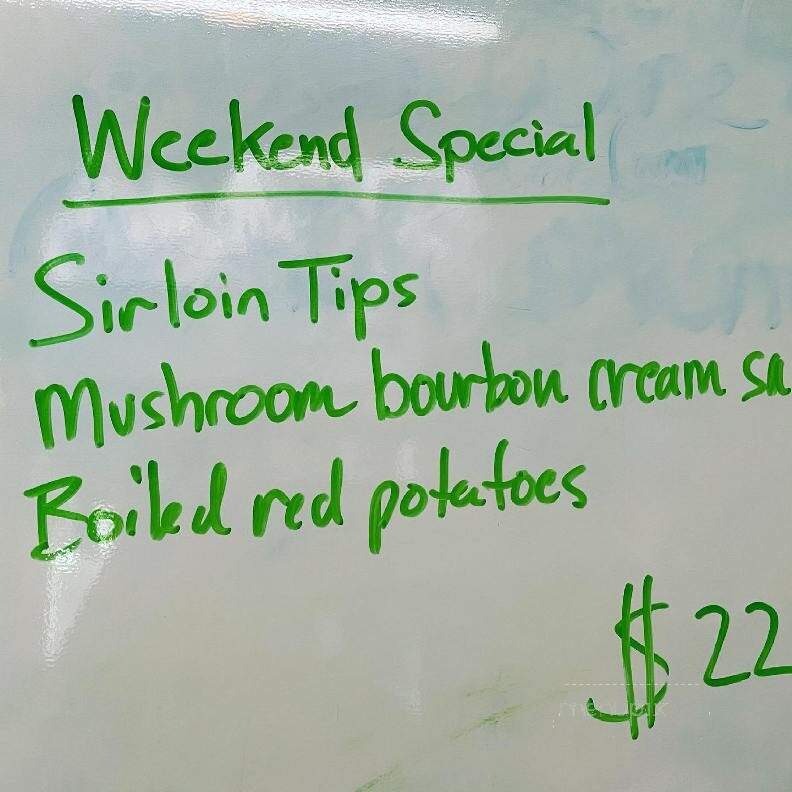 Weekend Special
Sirloin Tips
Mushroom bourbon cream sa
Boiled red potatoes
$22